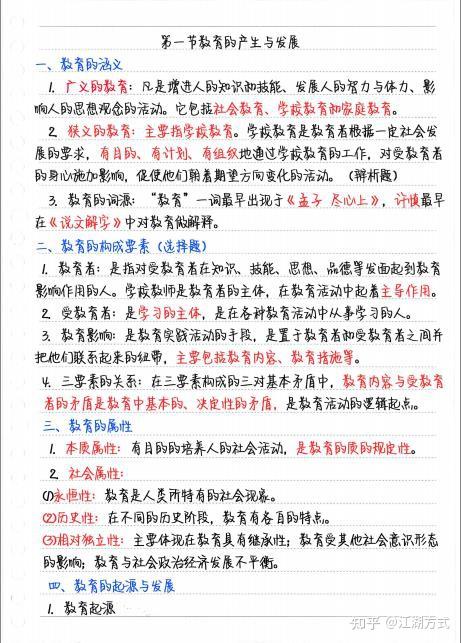 第一节教育的产生与发展
一、教育的涵义
1. 广义的教育：凡是增进人的知识和技能、发展人的智力与体力、影
响人的思想观念的活动。它包括社会教育、学校教育和家庭教育。
2. 狭义的教育：主要指学校教育。学校教育是教育者根据一定社会发
展的要求，有目的、有计划、有组织地通过学校教育的工作，对受教育者
的身心施加影响，促使他们朝着期望方向变化的活动。（辨析题）
3. 教育的词源："教育"一词最早出现于《孟子 尽心上》，许慎最早
在《说文解字》中对教育做解释。
二、教育的构成要素（选择题）
1. 教育者：是指对受教育者在知识、技能、思想、品德等发面起到教育
影响作用的人。学校教师是教育者的主体，在教育活动中起着主导作用。
2. 受教育者：是学习的主体，是在各种教育活动中从事学习的人。
3. 教育影响：是教育实践活动的手段，是置于教育者和受教育者之间并
把他们联系起来的纽带，主要包括教育内容、教育措施等。
4. 三要素的关系：在三要素构成的三对基本矛盾中，教育内容与受教育
者的矛盾是教育中基本的、决定性的矛盾，是教育活动的逻辑起点。
三、教育的属性
1. 本质属性：有目的的培养人的社会活动，是教育的质的规定性。
2. 社会属性：
(1)永恒性：教育是人类所特有的社会现象。
(2)历史性：在不同的历史阶段，教育有各自的特点。
(3)相对独立性：主要体现在教育具有继承性；教育受其他社会意识形态
的影响；教育与社会政治经济发展不平衡。
四、教育的起源与发展
1. 教育起源
知乎 @江湖方式